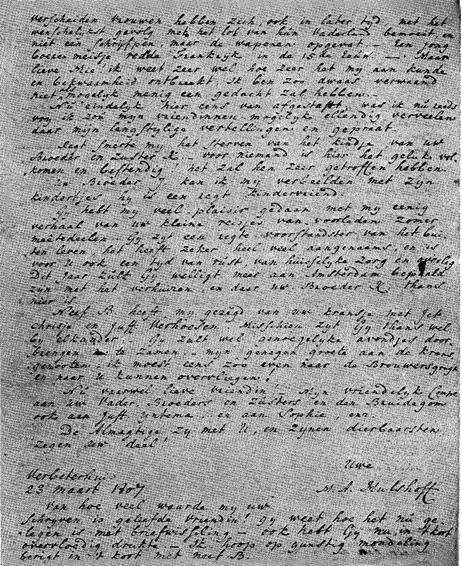 verscheiden vrouwen hebben zich ook in later tyd, met het
wenschelykst gevolg met het lot van hún Vaderland bemoeit, en
niet een schryfpen maar de wapenen opgevat. - Een jong
boeren meisje redde Frankryk in de 15e Eeuw. - Maar
lieve Mie ik weet zeer wel, hoe zeer het my aan kunde
en bekwaamheid ontbreekt. ik ben zoo dwaas verwaand
niet, moogelyk menig een gedacht zal hebben.
Nú eindelyk hier eens van afgestapt, was ik nú reeds
wou ik zon myn vriendinnen mogelyk ellendig verveelen
daar myn langstylige vertellingen en gepraat.
Regt smerte my het sterven van het kindjen van uw
Broeder en Zuster K. - voor niemand is hier het geluk vol,
komen en bestendig, het zal hen zeer getroffen hebben.
Uw Broeder J. kan ik my verbeelden met zyn
kindertjes, hy is een regt kindervriend.
Gy hebt my veel plaisir gedaan met my eenig
verhaal van uw kleine reisjes van voorleden zomer
meetedeelen. Gy zyt een regte voorstandster van het bui,
ten leven, het heeft zeker heel veel aangenaams, en is
voor U ook een tyd van rúst van huisselyke zorg en
dit Jaar zult Gy welligt meer aan Amsterdam bepaald
zyn met het verhuizen en daar uw Broeder K. thans
hier is.
Neef B. heeft my gezegd van uw kransje met Jet
Chrisje en Juff. Verhoesen. Misschien zyt Gy thans wel
by elkander. Gy zult wel genoegelyke avondjes door
brengen te zamen. myn genegen groete aan de krans,
genooten; ik moest eens zoo even naar de Brouwersgrgt
en naar U kunnen overvliegen!
Nú vaarwel lieve vriendin. Myn vriendelyk Compl.
aan uw Vader Broeders en Zusters en den Bruidegom
ook aan Juff. Yntema. en aan Sophie enz.
De Almagtige zy met U, en Zynen dierbaarsten
zegen uw deel!
Uwe
Verbeterhuis
23 maart 1807. M. A. Hulshoff.
Van hoe veel waarde my uw
schryven is geliefde vriendin! gy weet hoe het nú ge,
legen is met briefwisseling - ook hebt Gy nu in 't kort
overvloedig drukte - Ik hoop op gunstig mondeling
berigt in 't kort met neef B.